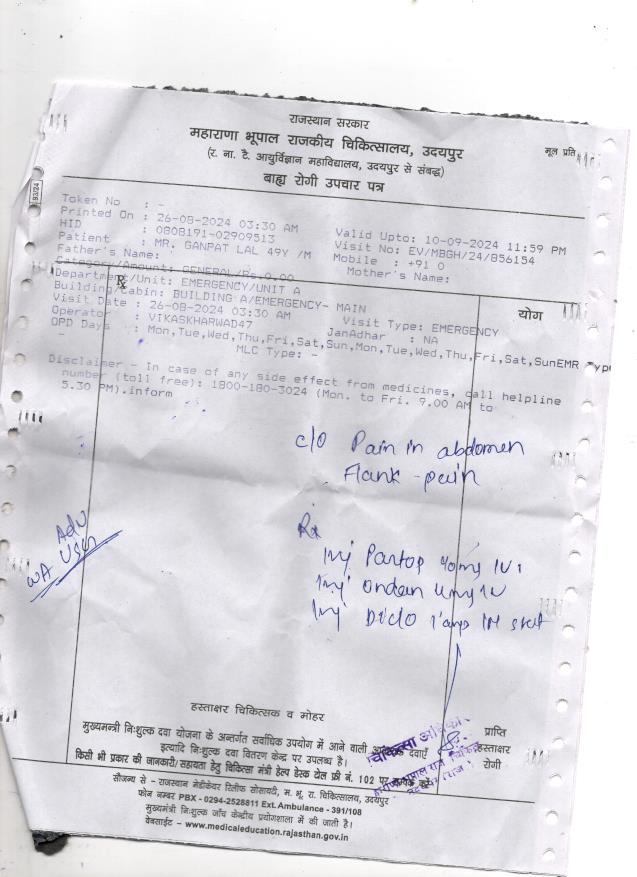 राजस्थान सरकार
महाराणा भूपाल राजकीय चिकित्सालय, उदयपुर
मूल प्रति
(र. ना. टै. आयुर्विज्ञान महाविद्यालय, उदयपुर से संबद्ध)
बाह्य रोगी उपचार पत्र
93/24
Token No : -
Printed On : 26-08-2024 03:30 AM
Valid Upto: 10-09-2024 11:59 PM
HID : 0808191-02909513
Visit No: EV/MBGH/24/856154
Patient : MR. GANPAT LAL 49Y /M
Mobile : +91 0
Father's Name:
Mother's Name:
Category/Amount: GENERAL/Rs.0.00
Department/Unit: EMERGENCY/UNIT A
Rx
योग
Building/Cabin: BUILDING A/EMERGENCY- MAIN
Visit Type: EMERGENCY
Visit Date : 26-08-2024 03:30 AM
JanAdhar : NA
Operator : VIKASKHARWAD47
OPD Days : Mon,Tue,Wed,Thu,Fri,Sat,Sun,Mon,Tue,Wed,Thu,Fri,Sat,SunEMR Typ
- MLC Type: -
Disclaimer - In case of any side effect from medicines, call helpline
number (toll free): 1800-180-3024 (Mon. to Fri. 9.00 AM to
5.30 PM).inform
c/o Pain in abdomen
Flank - pain
Adv
WA USG
Rx
Inj Pantop 40mg IV
Inj Ondem 4mg IV
Inj Diclo 1 amp IM stat
हस्ताक्षर चिकित्सक व मोहर
मुख्यमन्त्री निःशुल्क दवा योजना के अन्तर्गत सर्वाधिक उपयोग में आने वाली दवाएँ
इत्यादि निःशुल्क दवा वितरण केन्द्र पर उपलब्ध है।
प्राप्ति
हस्ताक्षर
रोगी
चिकित्सा अधिकारी
किसी भी प्रकार की जानकारी/सहायता हेतु चिकित्सा मंत्री हेल्प डेस्क टोल फ्री नं. 102 पर
सौजन्य से – राजस्थान मेडीकेयर रिलीफ सोसायटी, म. भू. रा. चिकित्सालय, उदयपुर
फोन नम्बर PBX - 0294-2528811 Ext. Ambulance - 391/108
मुख्यमन्त्री निःशुल्क जाँच केन्द्रीय प्रयोगशाला में की जाती है।
वेबसाईट – www.medicaleducation.rajasthan.gov.in